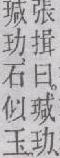 張揖曰。瑊玏
瑊玏石似玉